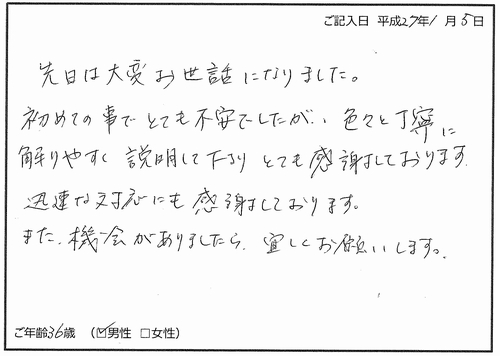 ご記入日 平成27年1月5日
先日は大変お世話になりました。
初めての事でとても不安でしたが、色々と丁寧に
解りやすく説明して下さりとても感謝しております。
迅速な対応にも感謝しております。
また、機会がありましたら、宜しくお願いします。
ご年齢36歳 (☑男性 □女性)